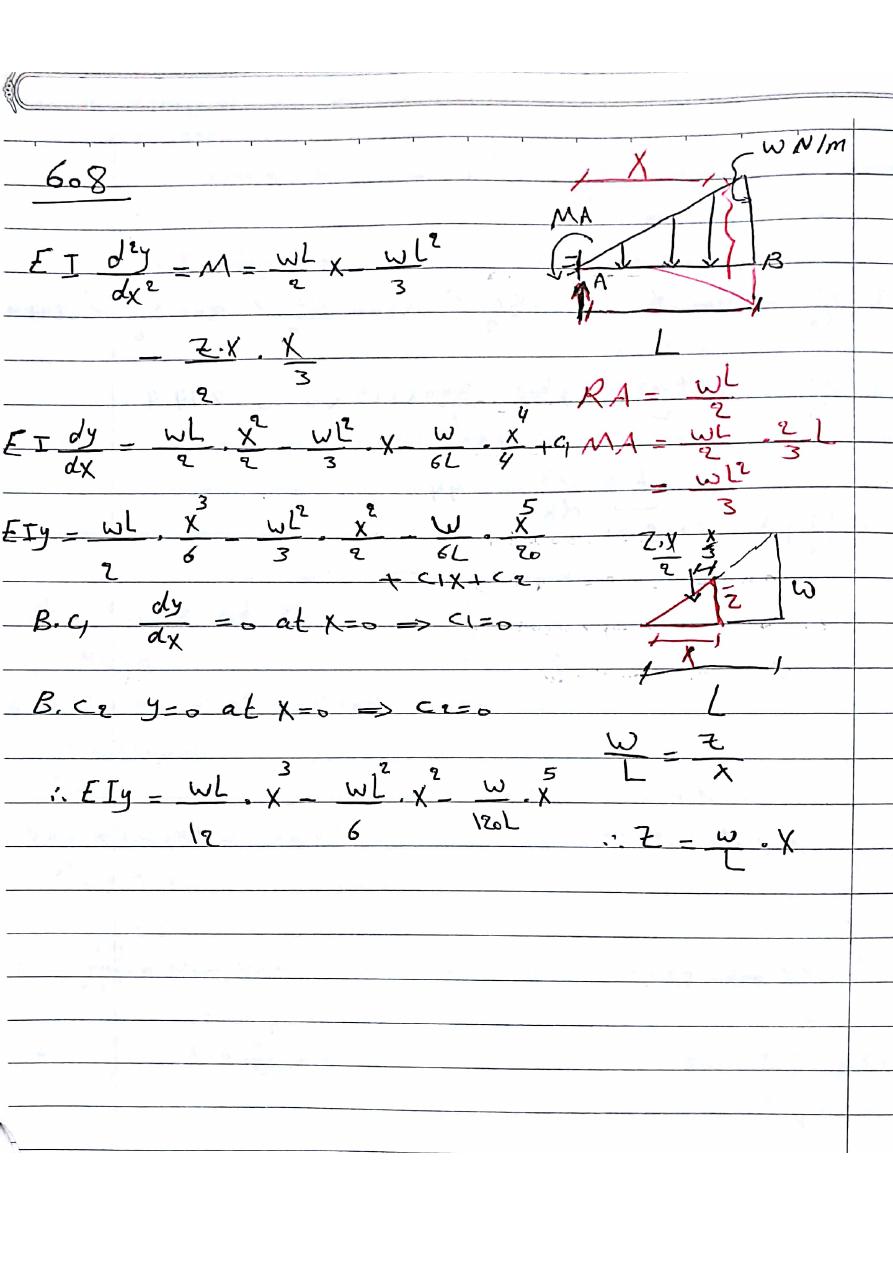 6.8
EI d²y/dx² = M = wL/2 x - wL²/3
- Z.X/2 . X/3
EI dy/dx = wL/2 . x²/2 - wL²/3 . x - w/6L . x⁴/4 + C1
EIy = wL/2 . x³/6 - wL²/3 . x²/2 - w/6L . x⁵/20
+ C1x + C2
B.C1 dy/dx = 0 at x=0 ⇒ C1=0
B.C2 y=0 at x=0 ⇒ C2=0
∴ EIy = wL/12 . x³ - wL²/6 . x² - w/120L . x⁵
w N/m
X
MA
A
B
L
RA = wL/2
MA = wL/2 . 2/3 L
= wL²/3
Z.X/2
x/3
Z
w
X
L
w/L = Z/x
∴ Z = w/L . X